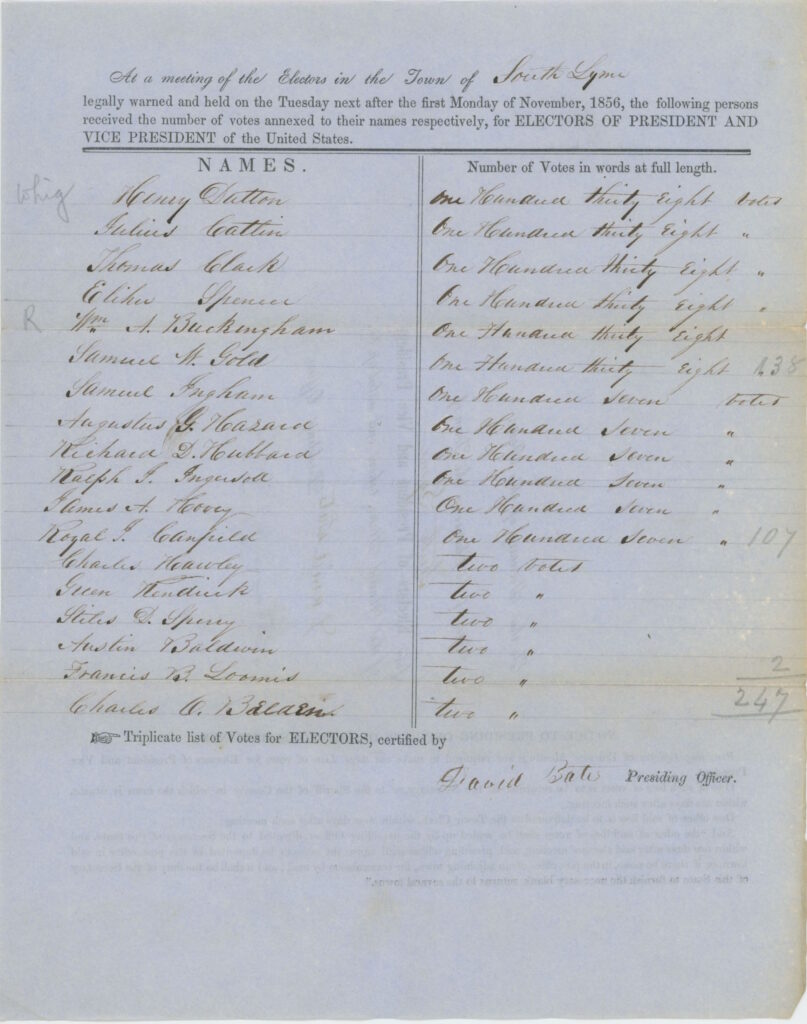 At a meeting of the Electors in the Town of South Lyme
legally warned and held on the Tuesday next after the first Monday of November, 1856, the following persons
received the number of votes annexed to their names respectively, for ELECTORS OF PRESIDENT AND
VICE PRESIDENT of the United States.
NAMES. Number of Votes in words at full length.
Whig Henry Dutton one Hundred thirty Eight votes
Julius Catlin One Hundred thirty Eight "
Thomas Clark One Hundred thirty Eight "
Elihu Spencer One Hundred thirty Eight "
R Wm A. Buckingham One Hundred thirty Eight
Samuel W. Gold One Hundred thirty Eight 138
Samuel Ingham One Hundred Seven votes
Augustus G. Hazard One Hundred Seven "
Richard D. Hubbard One Hundred Seven "
Ralph I. Ingersoll One Hundred Seven "
James A. Hovey One Hundred Seven "
Royal I. Canfield One Hundred Seven " 107
Charles Hawley two votes
Green Kendrick two "
Stiles D. Sperry two "
Austin Baldwin two "
Francis B. Loomis two " 2
Charles O. Belden two " 247
☞ Triplicate list of Votes for ELECTORS, certified by
David Bate Presiding Officer.